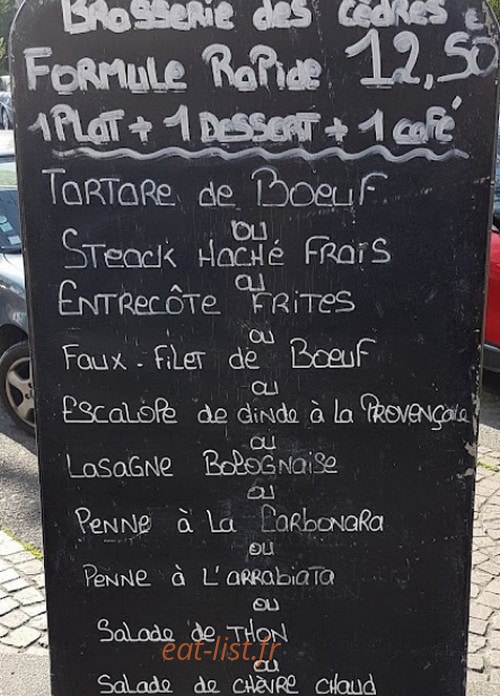 BRASSERIE des CÈDRES
FORMULE RAPIDE 12,50
1 PLAT + 1 DESSERT + 1 café
TARTARE de BOEUF
ou
STEACK HACHÉ FRAIS
ou
ENTRECÔTE FRITES
ou
FAUX-FILET de BOEUF
ou
ESCALOPE de dINdE à la PROVENÇALE
ou
LASAGNE BOLOGNAISE
ou
PENNE à La CARBONARA
ou
PENNE à L'ARRABIATA
ou
SALADE dE THON
eat-list.fr
ou
SALADE dE CHÈVRE CHAUD